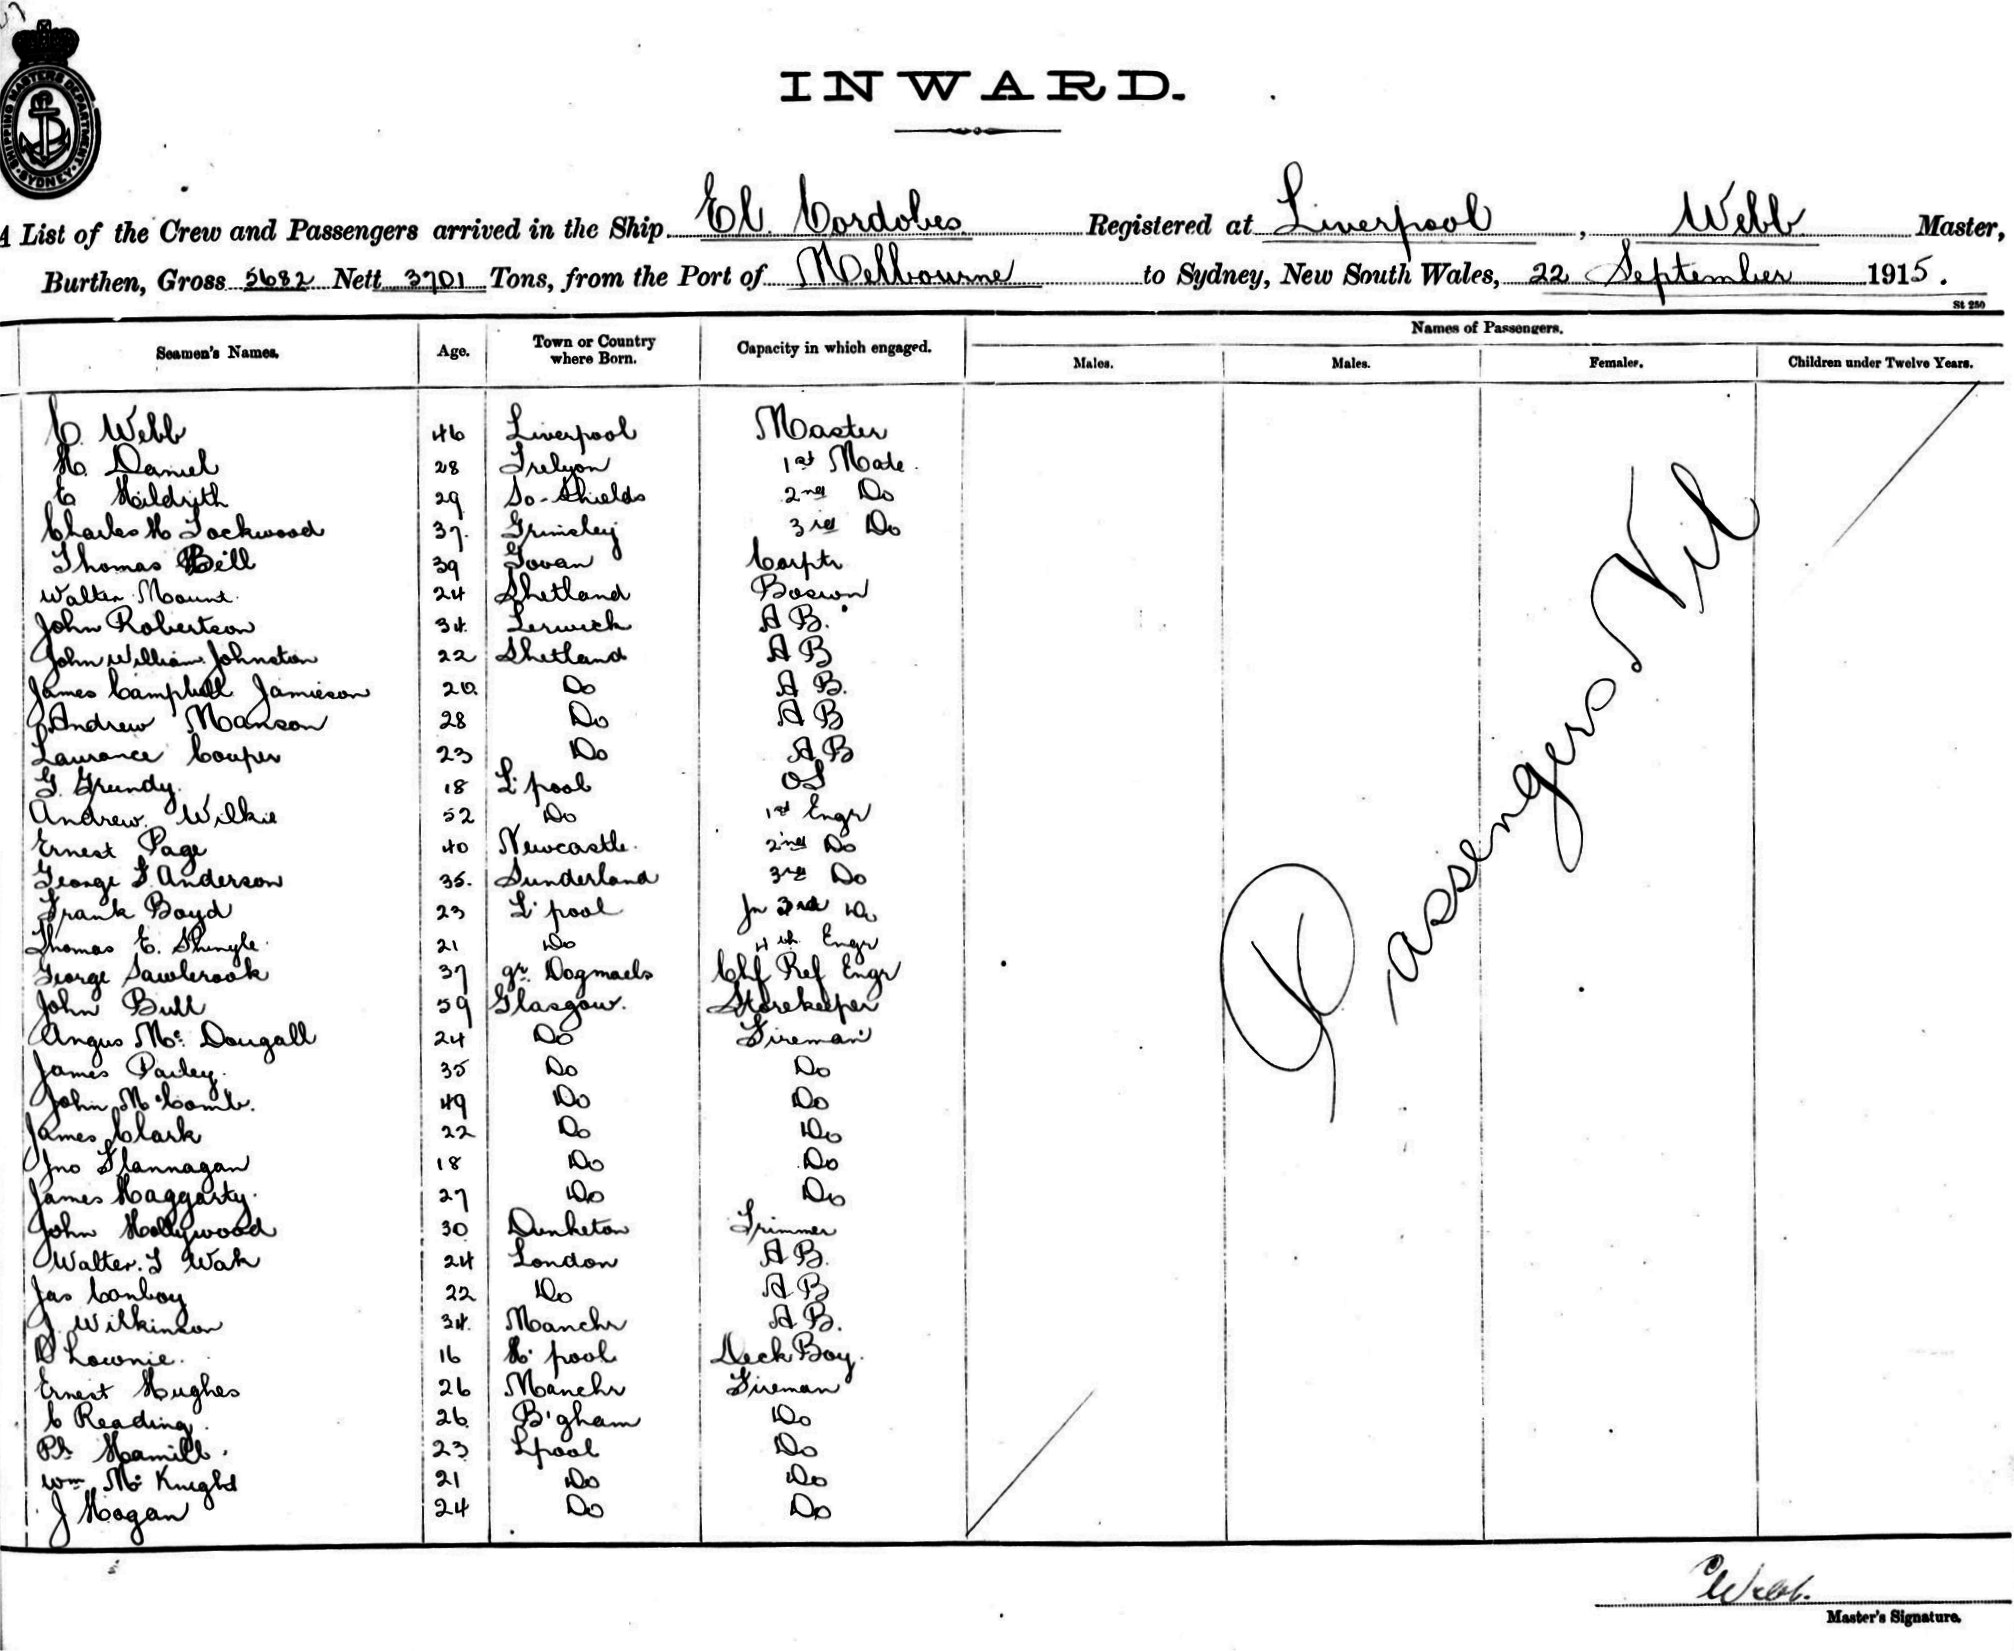 SHIPPING MASTERS DEPARTMENT SYDNEY
INWARD.
A List of the Crew and Passengers arrived in the Ship El Cordobes Registered at Liverpool, Webb Master,
Burthen, Gross 5682 Nett 3701 Tons, from the Port of Melbourne to Sydney, New South Wales, 22 September 1915.
St 250
Names of Passengers.
Seamen's Names. Age. Town or Country where Born. Capacity in which engaged. Males. Males. Females. Children under Twelve Years.
C. Webb 46 Liverpool Master
H. Daniel 28 Trelyon 1st Mate
E Hildrith 29 So-Shields 2nd Do
Charles H Lockwood 37. Grimsley 3rd Do
Thomas Bell 39 Govan Carptr
Walter Mount 24 Shetland Boswn
John Robertson 34 Lerwick A B.
John William Johnston 22 Shetland A B
James Campbell Jamieson 20. Do A B.
Andrew Manson 28 Do A B
Laurance Couper 23 Do A B
G. Grundy. 18 L'pool OS
Andrew Wilkie 52 Do 1st Engr
Ernest Page 40 Newcastle. 2nd Do
George F. Anderson 35. Sunderland 3rd Do
Frank Boyd 23 L'pool Jn 3rd Do
Thomas E. Shingle 21 Do 4th Engr
George Sawbrook 37 Dogmaels Chf Ref Engr
John Bull 59 Glasgow. Storekeeper
Angus Mc Dougall 24 Do Fireman
James Pailey. 35 Do Do
John McComb. 49 Do Do
James Clark 22 Do Do
Jno Flannagan 18 Do Do
James Haggarty. 27 Do Do
John Hollywood 30 Dunketon Trimmer
Walter. T Wak 24 London A B.
Jas Conboy 22 Do A B
J. Wilkinson 34. Manchr A B.
D Lownie. 16 H'pool Deck Boy.
Ernest Hughes 26 Manchr Fireman
C Reading. 26 B'gham Do
Pk Hamill. 23 Lpool Do
Wm Mc Knight 21 Do Do
J Hogan 24 Do Do
Passengers Nil
C Webb.
Master's Signature.